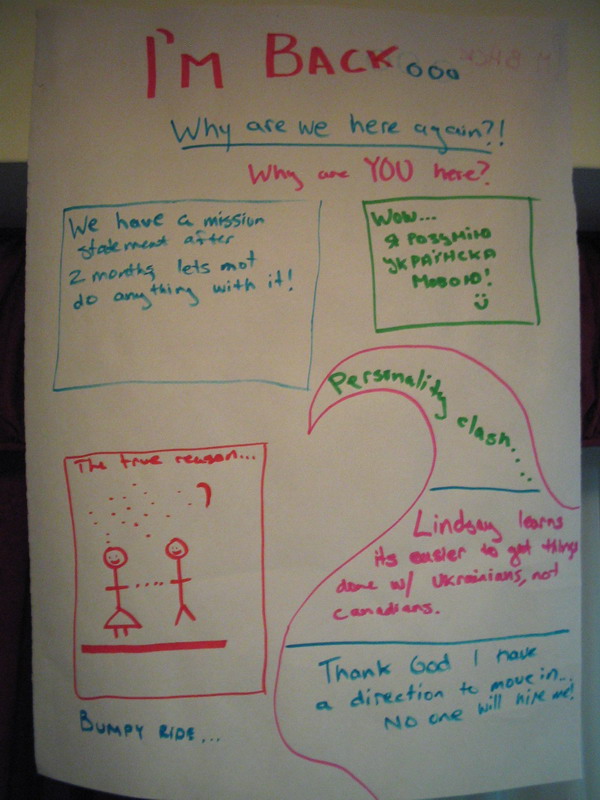 I'M BACK...
Why are we here again?!
Why are YOU here?
We have a mission
statement after
2 months, lets not
do anything with it!
Wow...
Я РОЗУМІЮ
УКРАЇНСКА
МОВОЮ!
Personality clash....
The true reason...
Lindsay learns
its easier to get things
done w/ Ukrainians, not
Canadians.
Thank God I have
a direction to move in...
NO one will hire me!
BUMPY RIDE...